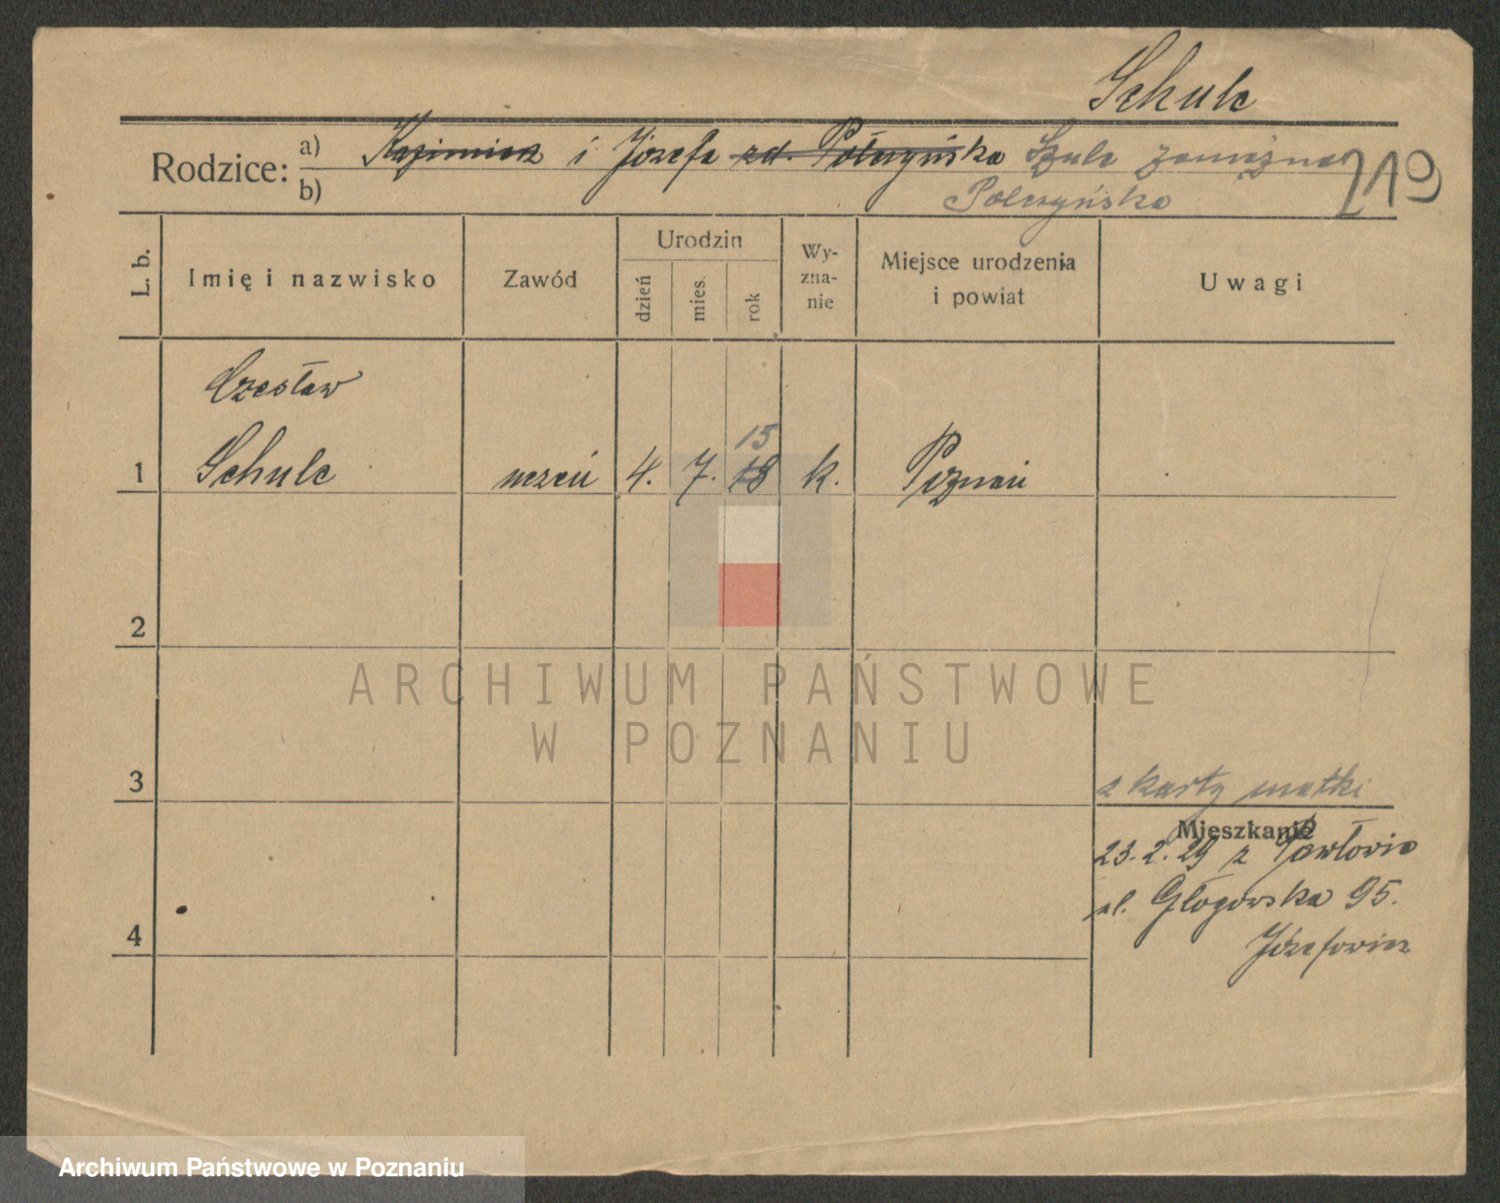 Schulc
Rodzice: a) Kazimierz i Józefa zd. Połczyńska Szulc zamężna 219
b) Połczyńska
L. b. Imię i nazwisko Zawód Urodzin dzień mies. rok Wy-zna-nie Miejsce urodzenia i powiat Uwagi
Czesław
15
1 Schulc uczeń 4. 7. 18 k. Poznań
2
ARCHIWUM PAŃSTWOWE
W POZNANIU
3 z karty matki
Mieszkanie
23.2.29 z Pawłowic
ul. Głogowska 95.
4 Józefowicz
Archiwum Państwowe w Poznaniu